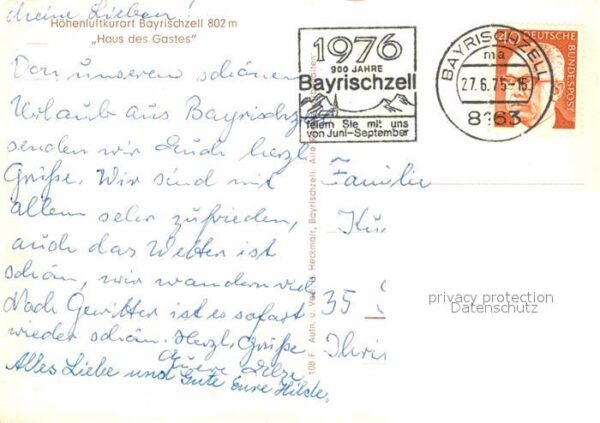 Meine Lieben!
Höhenluftkurort Bayrischzell 802 m
„Haus des Gastes"
Von unserem schönen
Urlaub aus Bayrischzell
senden wir Euch herzl.
Grüße. Wir sind mit
allem sehr zufrieden,
auch das Wetter ist
schön, wir wandern viel
Nach Gewitter ist es sofort
wieder schön. Herzl. Grüße
Eure
Alles Liebe und Gute Eure Hilde.
1976
900 JAHRE
Bayrischzell
feiern Sie mit uns
von Juni-September
BAYRISCHZELL
ma
27.6.75-16
8163
40
DEUTSCHE
BUNDESPOST
108 F Aufn. u. Verl. B. Heckmair, Bayrischzell. Alle
Familie
35
privacy protection
Datenschutz